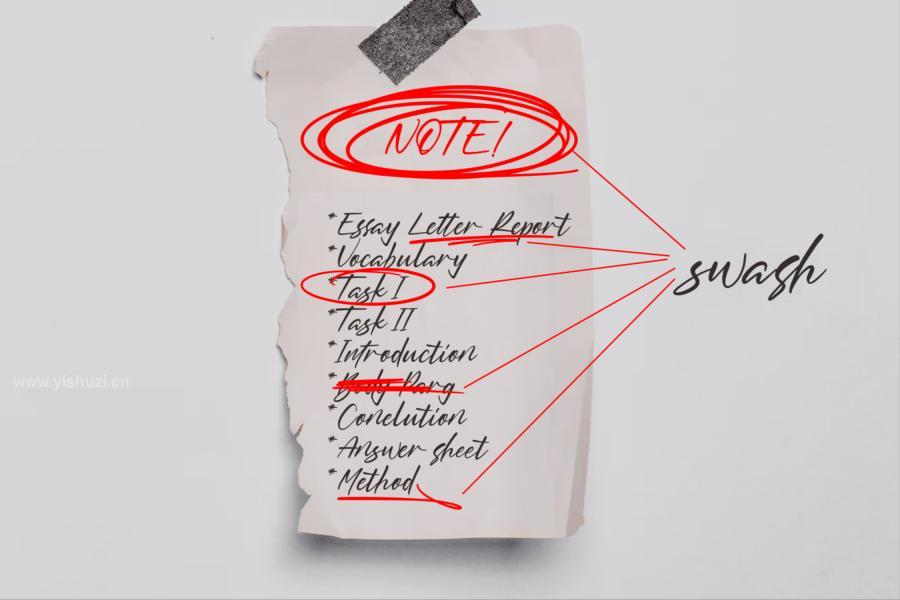 NOTE!
*Essay Letter Report
*Vocabulary
*Task I
*Task II
*Introduction
*Body Parg
*Conclution
*Answer sheet
*Method
swash
www.yishuzi.cn